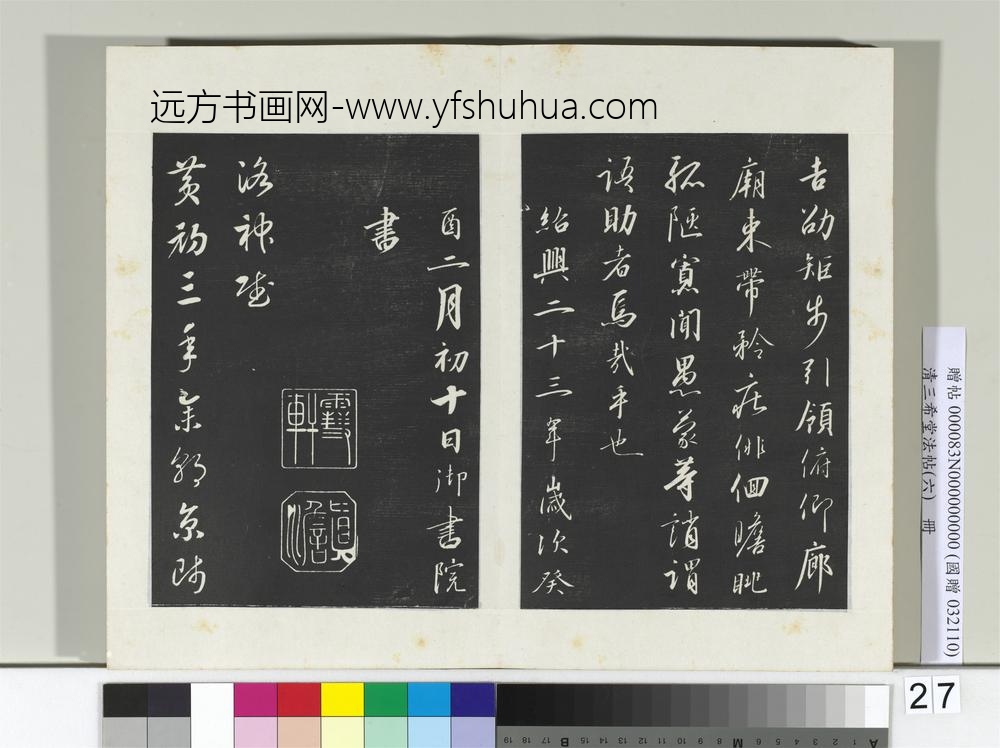 远方书画网-www.yfshuhua.com
吉劭矩步引領俯仰廊
廟束帶矜莊俳佪瞻眺
孤陋寡聞愚蒙等誚謂
語助者焉哉乎也
紹興二十三年歲次癸
酉二月初十日御書院
書
洛神賦
黃初三年余朝京師
贈帖 000083N000000000 (國贈 032110)
清三希堂法帖(六) 冊
27